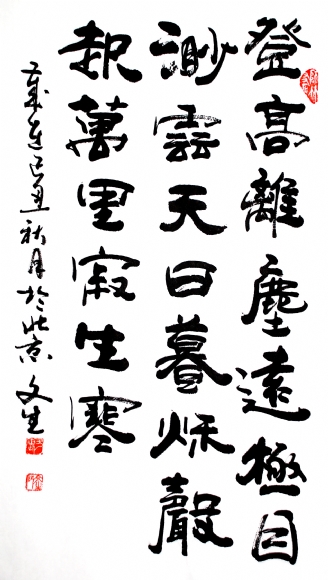 登高離塵遠極目
渺雲天日暮秌聲
起萬里寂生寒
歲在己丑秋月於北京文生